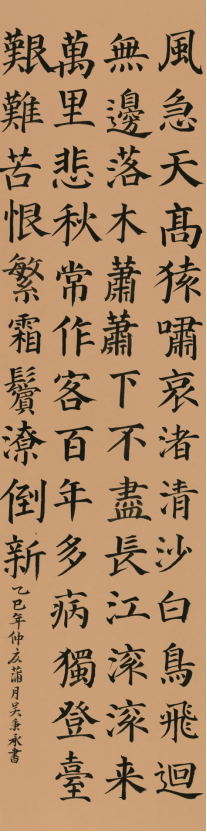 風急天髙猿嘯哀渚清沙白鳥飛迴
無邊落木蕭蕭下不盡長江滚滚来
萬里悲秋常作客百年多病獨登臺
艱難苦恨繁霜鬢潦倒新
乙巳年仲夏蒲月吴秉承書